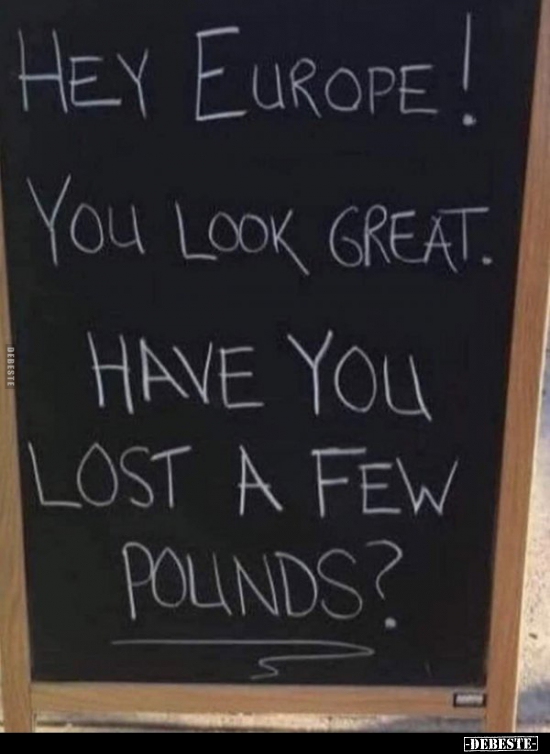 HEY EUROPE!
YOU LOOK GREAT.
HAVE YOU
LOST A FEW
POUNDS?
DEBESTE
-DEBESTE-